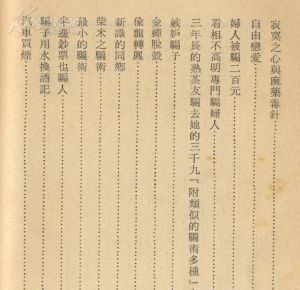 寂寞之心與麻藥毒針
自由戀愛
婦人被騙二百元
看相不高明專門騙婦人
三年長的熟茶友騙去她的三千九『附類似的騙術多種』
嫉妒騙子
金蟬脫殼
偷龍轉鳳
新識的同鄉
柴米之騙術
最小的騙術
半邊鈔票也騙人
騙子用水換酒記
汽車買煙